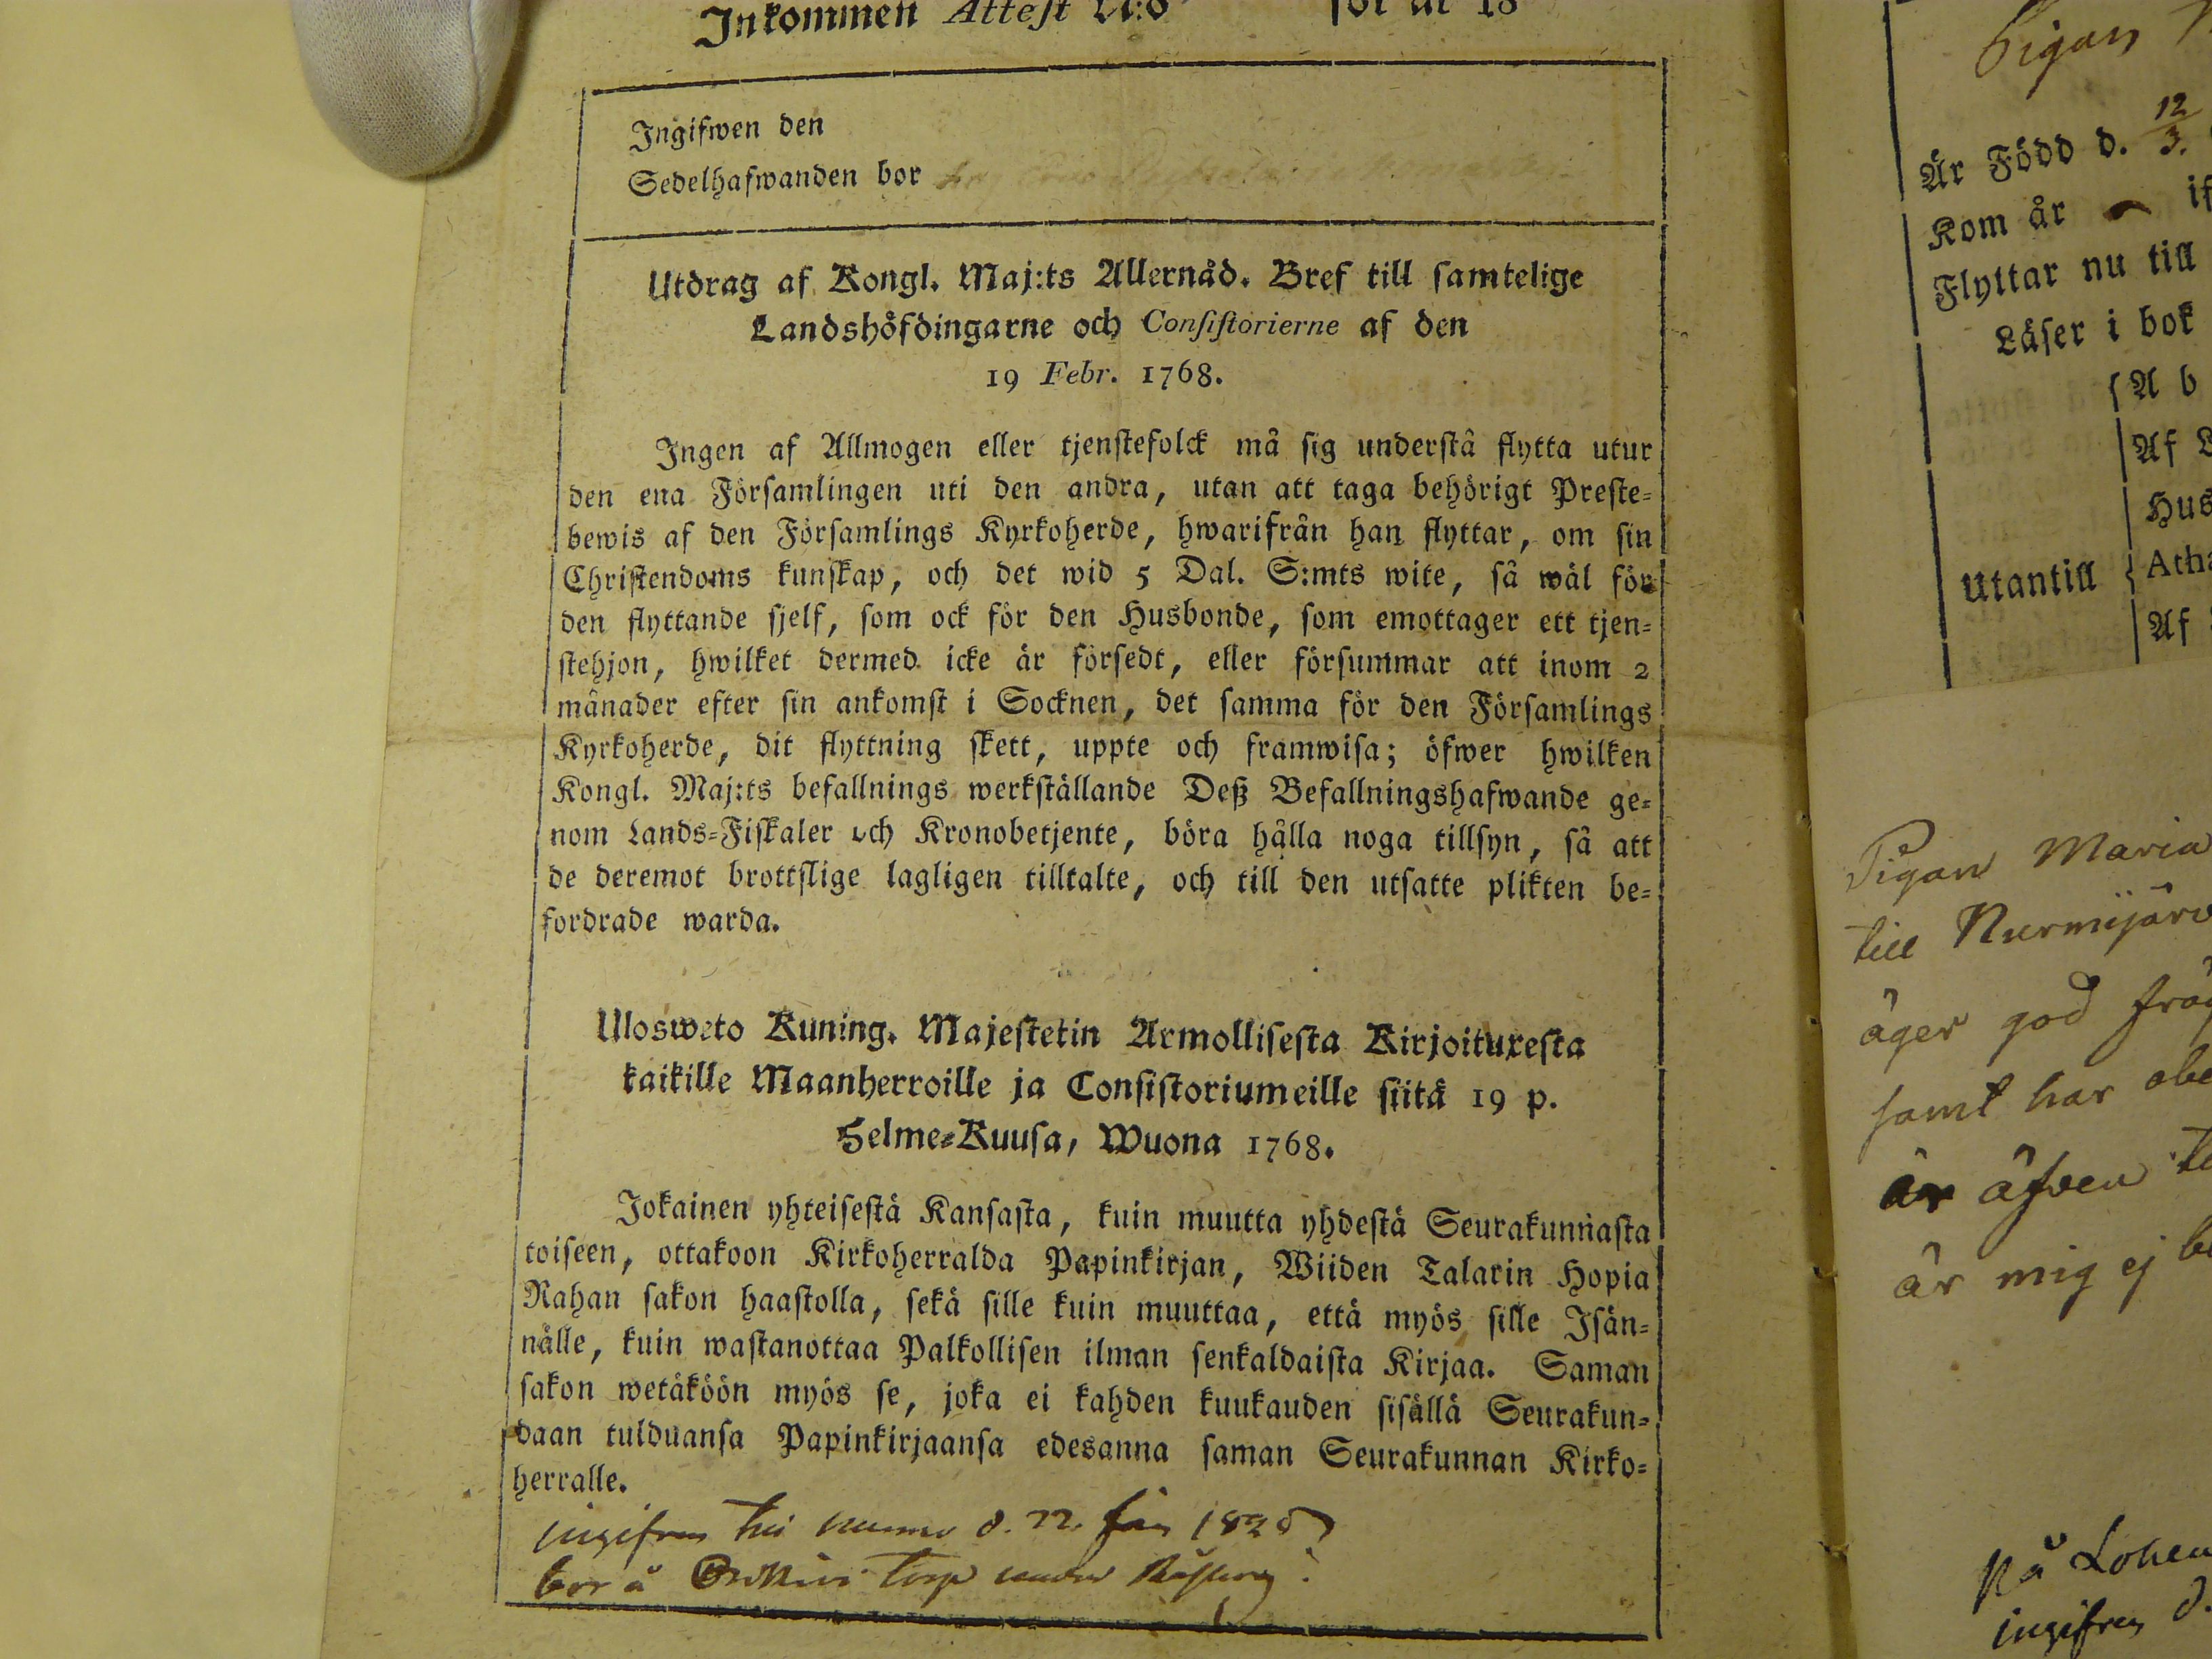 Inkommen Attest N:o för år 18
Ingifwen den
Sedelhafwanden bor
Utdrag af Kongl. Maj:ts Allernåd. Bref till samtelige
Landshöfdingarne och Consistorierne af den
19 Febr. 1768.
Ingen af Allmogen eller tjenstefolck må sig understå flytta utur
den ena Församlingen uti den andra, utan att taga behörigt Preste-
bewis af den Församlings Kyrkoherde, hwarifrån han flyttar, om sin
Christendoms kunskap, och det wid 5 Dal. S:mts wite, så wäl för
den flyttande sjelf, som ock för den Husbonde, som emottager ett tjen-
stehjon, hwilket dermed icke är försedt, eller försummar att inom 2
månader efter sin ankomst i Socknen, det samma för den Församlings
Kyrkoherde, dit flyttning skett, uppte och framwisa; öfwer hwilken
Kongl. Maj:ts befallnings werkställande Deß Befallningshafwande ge-
nom Lands-Fiskaler och Kronobetjente, böra hålla noga tillsyn, så att
de deremot brottslige lagligen tilltalte, och till den utsatte plikten be-
fordrade warda.
Ulosweto Kuning. Majestetin Armollisesta Kirjoituxesta
kaikille Maanherroille ja Consistoriumeille siitä 19 p.
Helme-Kuusa, Wuona 1768.
Jokainen yhteisestä Kansasta, kuin muutta yhdestä Seurakunnasta
toiseen, ottakoon Kirkoherralda Papinkirjan, Wiiden Talarin Hopia
Rahan sakon haastolla, sekä sille kuin muuttaa, että myös sille Isän-
nälle, kuin wastanottaa Palkollisen ilman senkaldaista Kirjaa. Saman
sakon wetäköön myös se, joka ei kahden kuukauden sisällä Seurakun-
daan tulduansa Papinkirjaansa edesanna saman Seurakunnan Kirko-
herralle.
ingifven d. 22
bor å torp under
Pigan
Är Född d. 12/3.
Kom år if
Flyttar nu till
Läser i bok
A b
Af L
Hus
Utantill Atha
Af
Pigan Maria
till Nurmijärv
äger god fräg
samt har obe
är äfven
är mig ej
på Lohen
ingifven d.